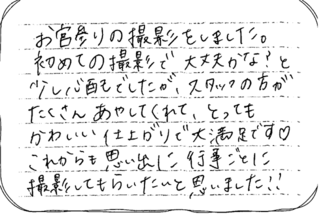 お宮参りの撮影をしました。
初めての撮影で大丈夫かな?と
少し心配もでしたが、スタッフの方が
たくさんあやしてくれて、とっても
かわいい仕上がりで大満足です♡
これからも思い出に行事ごとに
撮影してもらいたいと思いました!!